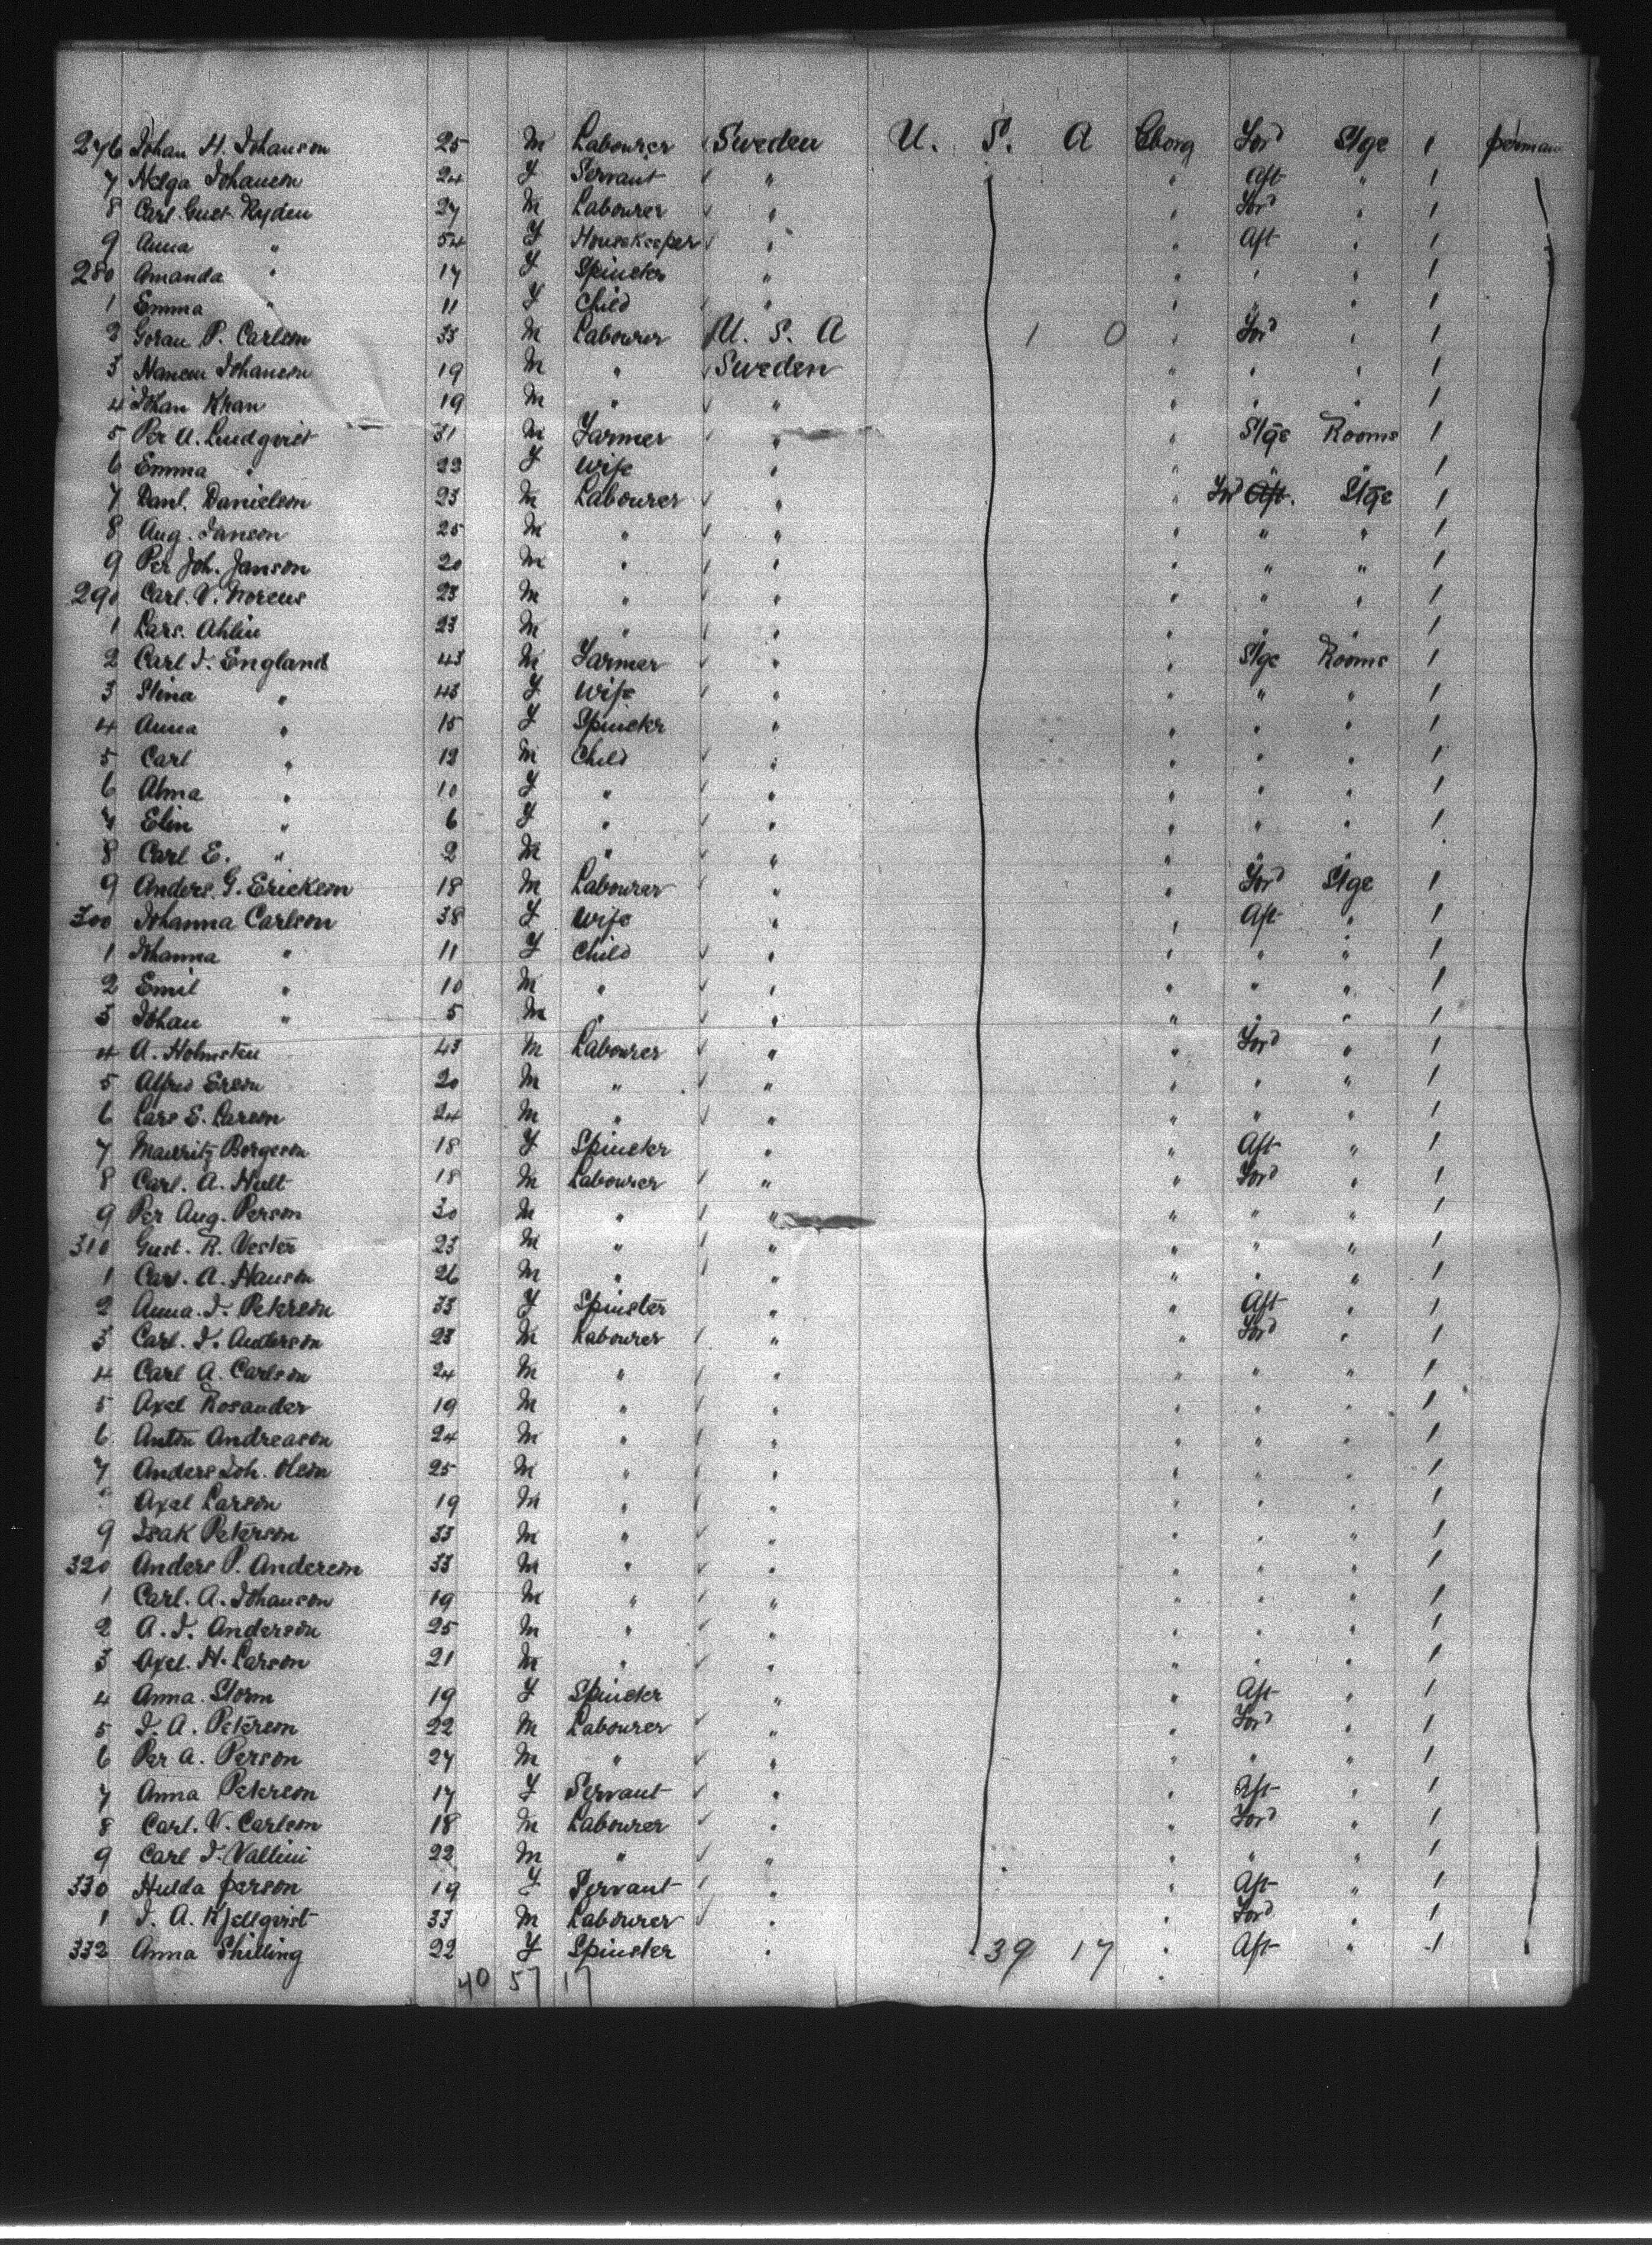 276 Johan H. Johanson 25 M Labourer Sweden U. S. A Gborg For'd Stge 1 perman
7 Helga Johanson 24 F Servant " " Aft " 1
8 Carl Gust. Ryden 27 M Labourer " " For'd " 1
9 Anna " 54 F Housekeeper " " Aft " 1
280 Amanda " 17 F Spinster " " " " 1
1 Emma " 11 F Child " " " " 1
2 Goran P. Carlson 33 M Labourer U. S. A 1 0 " For'd " 1
3 Hansen Johanson 19 M " Sweden " " " 1
4 Johan Kran 19 M " " " " " 1
5 Per A. Lindqvist 31 M Farmer " " Stge Rooms 1
6 Emma " 22 F Wife " " " " 1
7 Danl. Danielson 23 M Labourer " " For'd Aft. Stge 1
8 Aug. Janson 25 M " " " " " 1
9 Per Joh. Janson 20 M " " " " " 1
290 Carl. V. Noreus 23 M " " " " " 1
1 Lars. Ahlin 23 M " " " " " 1
2 Carl J. England 43 M Farmer " " Stge Rooms 1
3 Stina " 43 F Wife " " " " 1
4 Anna " 15 F Spinster " " " " 1
5 Carl " 12 M Child " " " " 1
6 Alma " 10 F " " " " " 1
7 Elin " 6 F " " " " " 1
8 Carl E. " 2 M " " " " "
9 Anders. G. Erickson 18 M Labourer " " For'd Stge 1
300 Johanna Carlson 38 F Wife " " Aft " 1
1 Johanna " 11 F Child " " " " 1
2 Emil " 10 M " " " " " 1
3 Johan " 5 M " " " " " 1
4 A. Holmsten 43 M Labourer " " For'd " 1
5 Alfred Erson 20 M " " " " " 1
6 Lars E. Larson 24 M " " " " " 1
7 Mauritz Borgeson 18 F Spinster " " Aft " 1
8 Carl. A. Hult 18 M Labourer " " For'd " 1
9 Per Aug. Person 30 M " " " " " 1
310 Gust. R. Vester 23 M " " " " " 1
1 Carl. A. Hanson 26 M " " " " " 1
2 Anna. J. Peterson 33 F Spinster " " Aft " 1
3 Carl. J. Anderson 23 M Labourer " " For'd " 1
4 Carl A. Carlson 24 M " " " " " 1
5 Axel Rosander 19 M " " " " " 1
6 Anton Andreason 24 M " " " " " 1
7 Anders Joh. Olson 25 M " " " " " 1
Axel Larson 19 M " " " " " 1
9 Isak Peterson 33 M " " " " " 1
320 Anders P. Anderson 33 M " " " " " 1
1 Carl. A. Johanson 19 M " " " " " 1
2 A. J. Anderson 25 M " " " " " 1
3 Axel. H. Larson 21 M " " " " " 1
4 Anna. Storm 19 F Spinster " " Aft " 1
5 J. A. Peterson 22 M Labourer " " For'd " 1
6 Per A. Person 27 M " " " " " 1
7 Anna Peterson 17 F Servant " " Aft " 1
8 Carl. V. Carlson 18 M Labourer " " For'd " 1
9 Carl J. Vallini 22 M " " " " " 1
330 Hulda Person 19 F Servant " " Aft " 1
1 J. A. Kjellqvist 33 M Labourer " " For'd " 1
332 Anna Shilling 22 F Spinster " 39 17 " Aft " 1
40 57 17